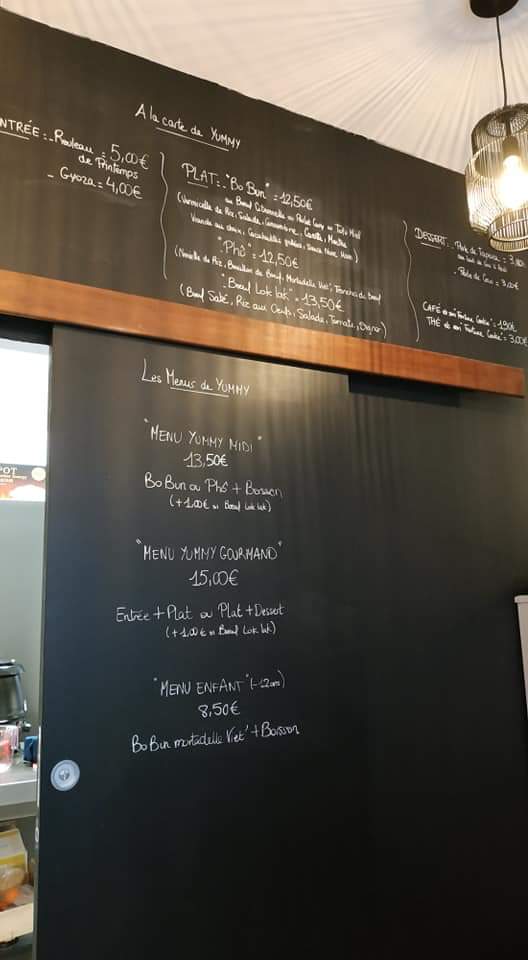 A la carte de YUMMY
NTRÉE: - Rouleau = 5,00€
de Printemps
- Gyoza = 4,00€
PLAT: "Bo Bun" = 12,50€
au Bœuf Citronnelle ou Poulet Curry ou Tofu Miel
(Vermicelle de Riz, Salade, Concombre, Carotte, Menthe
Viande au choix, Cacahuètes grillées, Sauce Nuoc Mam)
"Phô" = 12,50€
(Nouille de Riz, Bouillon de Bœuf, Mortadelle Viet', Tranches de Bœuf
"Bœuf Lok lak" = 13,50€
(Bœuf Saté, Riz aux Oeufs, Salade, Tomate, Oignon)
DESSERT: Perle de Tapioca = 3,00
au lait de Coco &
- Perle de Coco = 3,00€
CAFÉ et son Fortune Cookie = 1,90€
THÉ et son Fortune Cookie = 3,00€
Les Menus de YUMMY
"MENU YUMMY MIDI"
13,50€
Bo Bun ou Phô + Boisson
(+1,00€ si Bœuf Lok lak)
"MENU YUMMY GOURMAND"
15,00€
Entrée + Plat ou Plat + Dessert
(+1,00€ si Bœuf Lok lak)
"MENU ENFANT" (-12ans)
8,50€
Bo Bun mortadelle Viet' + Boisson
POT